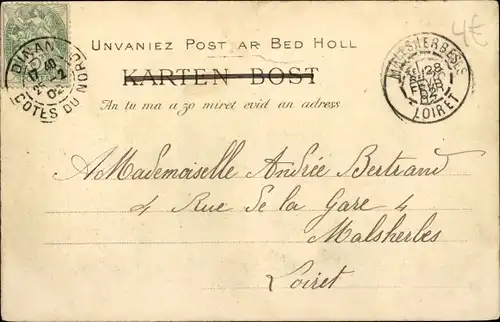 4€
DINAN
17 40
2 02
COTES DU NORD
UNVANIEZ POST AR BED HOLL
KARTEN BOST
An tu ma a zo miret evid an adress
MALESHERBES
28
FEVR
02
LOIRET
A Mademoiselle Andrée Bertrand
4 Rue de la Gare 4
Malsherbes
Loiret